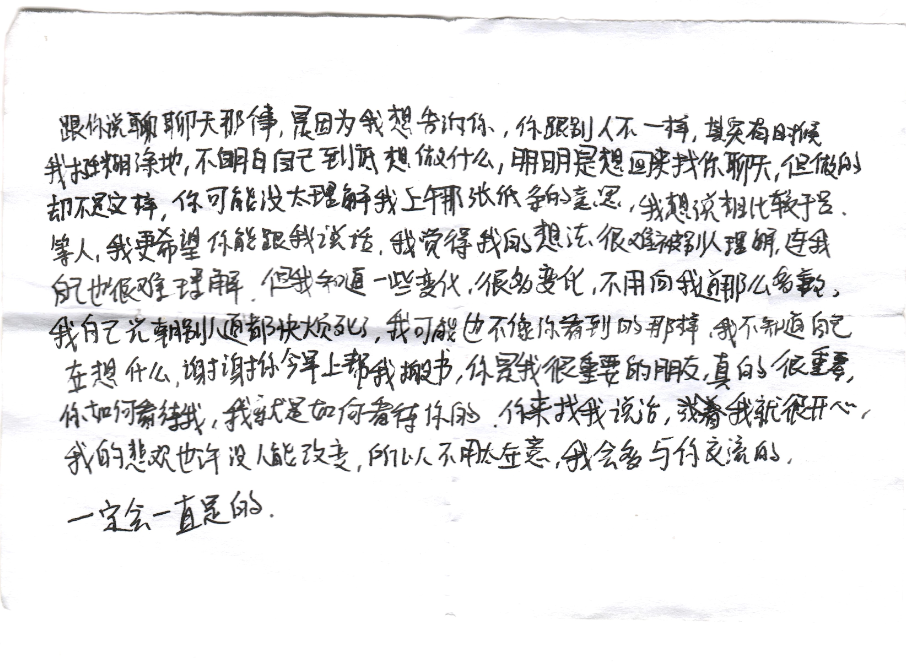 跟你说聊聊天那件事，是因为我想告诉你，你跟别人不一样，其实有时候
我挺糊涂地，不明白自己到底想做什么，明明是想回来找你聊天，但做的
却不是这样，你可能没太理解我上午那张纸条的意思，我想说相比较于吕.
等人，我更希望你能跟我说话，我觉得我的想法很难被别人理解，连我
自己也很难理解．但我知道一些变化，很多变化，不用向我道那么多歉，
我自己光朝别人道都快烦死了，我可能也不像你看到的那样．我不知道自己
在想什么，谢谢你今早上帮我搬书，你是我很重要的朋友，真的很重要，
你如何看待我，我就是如何看待你的．你来找我说话，我就很开心，
我的悲欢也许没人能改变，所以不用太在意，我会多与你交流的．
一定会一直是的．